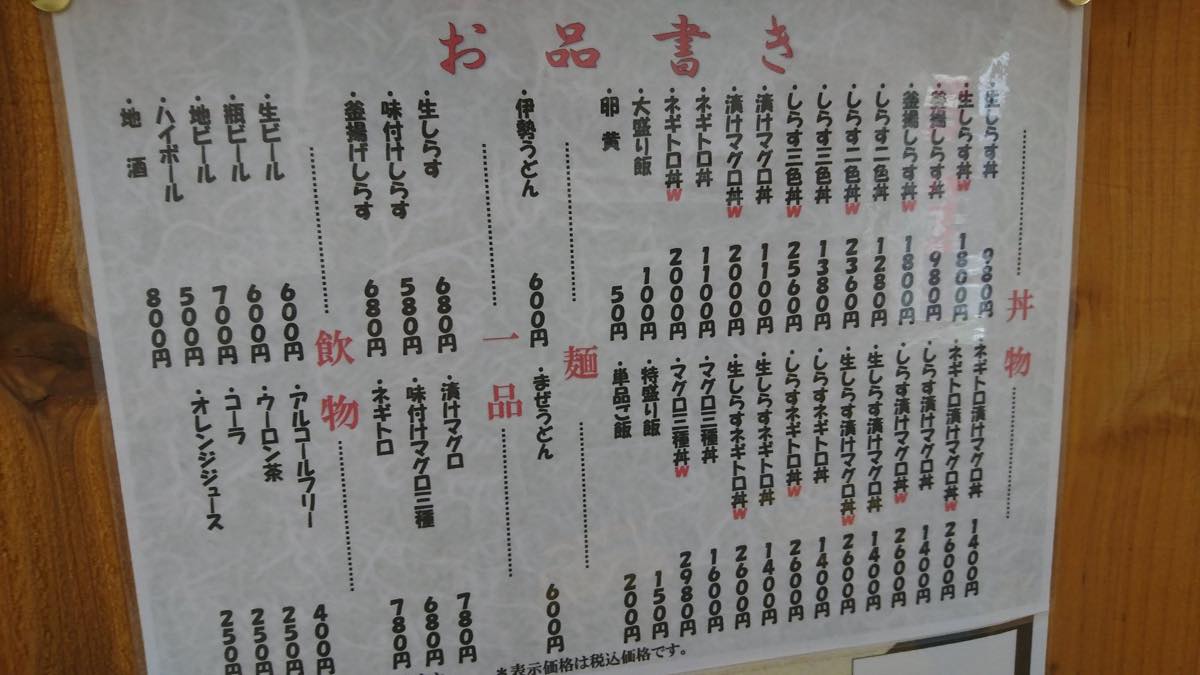 お品書き
丼物
・生しらす丼 980円
・生しらす丼W 1800円
・釜揚しらす丼 980円
・釜揚しらす丼W 1800円
・しらす二色丼 1280円
・しらす二色丼W 2360円
・しらす三色丼 1380円
・しらす三色丼W 2560円
・漬けマグロ丼 1100円
・漬けマグロ丼W 2000円
・ネギトロ丼 1100円
・ネギトロ丼W 2000円
・大盛り飯 100円
・卵黄 50円
・ネギトロ漬けマグロ丼 1400円
・ネギトロ漬けマグロ丼W 2600円
・しらす漬けマグロ丼 1400円
・しらす漬けマグロ丼W 2600円
・生しらす漬けマグロ丼 1400円
・生しらす漬けマグロ丼W 2600円
・しらすネギトロ丼 1400円
・しらすネギトロ丼W 2600円
・生しらすネギトロ丼 1400円
・生しらすネギトロ丼W 2600円
・マグロ三種丼 1600円
・マグロ三種丼W 2980円
・特盛り飯 150円
・単品ご飯 200円
麺
・伊勢うどん 600円
・まぜうどん 600円
一品
・生しらす 680円
・味付けしらす 580円
・釜揚げしらす 680円
・漬けマグロ 780円
・味付けマグロ三種 680円
・ネギトロ 780円
飲物
・生ビール 600円
・瓶ビール 600円
・地ビール 700円
・ハイボール 500円
・地酒 800円
・アルコールフリー 400円
・ウーロン茶 250円
・コーラ 250円
・オレンジジュース 250円
*表示価格は税込価格です。